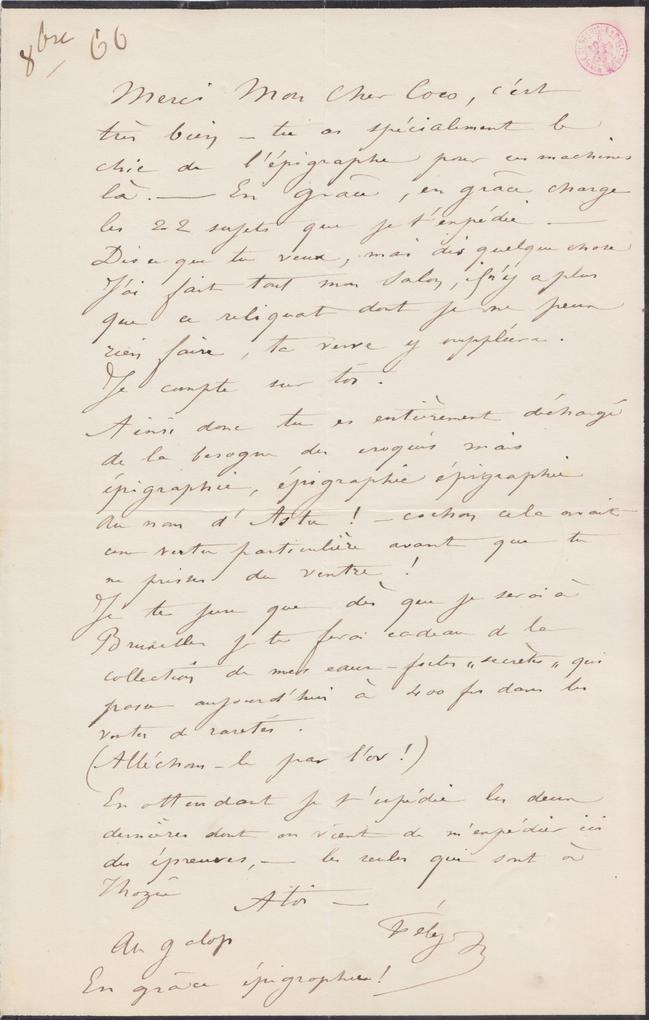 8bre 66
Merci Mon cher Coco, c'est
très bien – tu as spécialement le
chic de l'épigraphe pour ces machines
là. — En grâce, en grâce charge
les 22 sujets que je t'expédie —
Dis ce que tu veux, mais dis quelque chose
J'ai fait tout mon salon, il n'y a plus
que ce reliquat dont je ne peux
rien faire, ta verve y suppléera.
Je compte sur toi.
Ainsi donc tu es entièrement déchargé
de la besogne des croquis mais
épigraphie, épigraphie épigraphie
Au nom d'Astu ! – cochon cela avait
une vertu particulière avant que tu
ne prisses du ventre !
Je te jure que dès que je serai à
Bruxelles je te ferai cadeau de la
collection de mes eaux-fortes „secrètes„ qui
passe aujourd'hui à 400 frs dans les
ventes de raretés.
(Alléchons-le par l'or !)
En attendant je t'expédie les deux
dernières dont on vient de m'expédier ici
des épreuves, — les seules qui sont à
Thozée
A toi —
Fély R
Au galop
En grâce épigraphie !